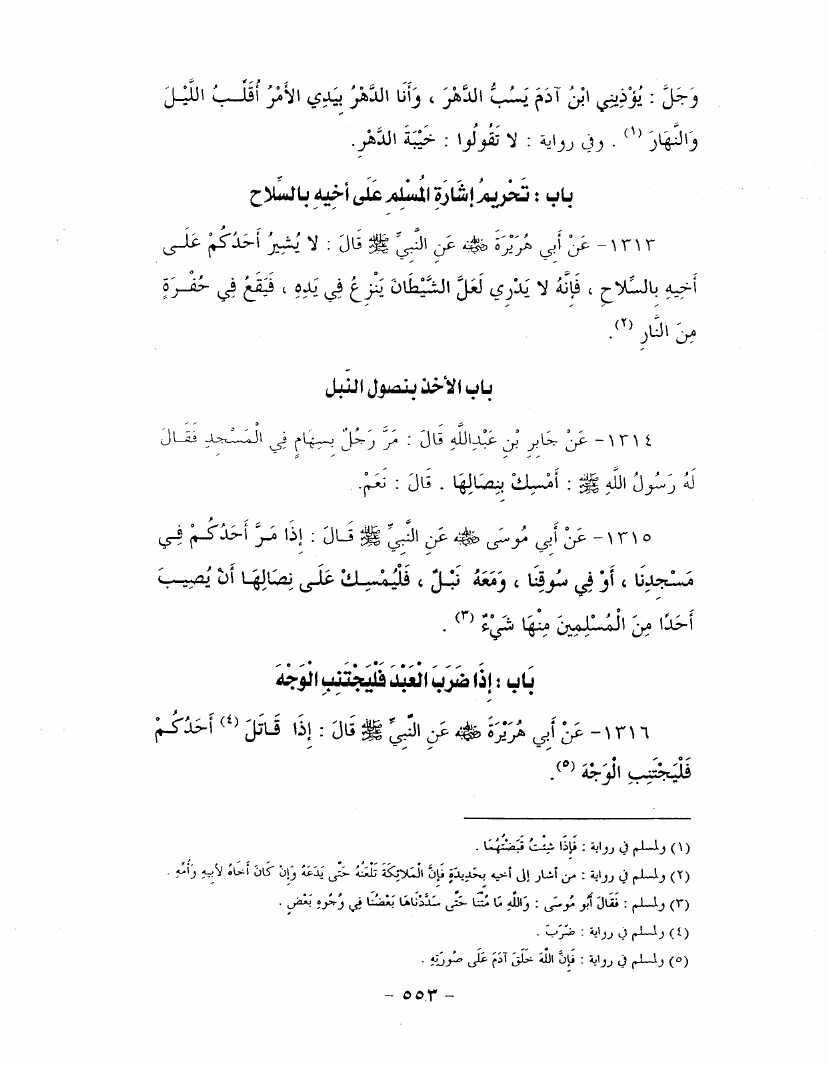 وَجَلَّ : يُؤْذِينِي ابْنُ آدَمَ يَسُبُّ الدَّهْرَ ، وَأَنَا الدَّهْرُ بِيَدِي الأَمْرُ أُقَلِّبُ اللَّيْلَ
وَالنَّهَارَ (١) . وفي رواية : لا تَقُولُوا : خَيْبَةَ الدَّهْرِ.
باب : تَحْريمُ إشَارَةِ المُسْلِم عَلَى أخِيهِ بالسِّلاح
١٣١٣- عَنْ أَبِي هُرَيْرَةَ ﷺ عَنِ النَّبِيِّ ﷺ قَالَ : لا يُشِيرُ أَحَدُكُمْ عَلَى
أَخِيهِ بِالسِّلاحِ ، فَإِنَّهُ لا يَدْرِي لَعَلَّ الشَّيْطَانَ يَنْزِعُ فِي يَدِهِ ، فَيَقَعُ فِي حُفْرَةٍ
مِنَ النَّارِ (٢).
باب الأخذ بنصول النَّبل
١٣١٤- عَنْ جَابِرِ بْنِ عَبْدِاللَّهِ قَالَ : مَرَّ رَجُلٌ بِسِهَامٍ فِي الْمَسْجِدِ فَقَالَ
لَهُ رَسُولُ اللَّهِ ﷺ : أَمْسِكْ بِنِصَالِهَا . قَالَ : نَعَمْ.
١٣١٥- عَنْ أَبِي مُوسَى عَنِ النَّبِيِّ ﷺ قَالَ : إِذَا مَرَّ أَحَدُكُمْ فِي
مَسْجِدِنَا ، أَوْ فِي سُوقِنَا ، وَمَعَهُ نَبْلٌ ، فَلْيُمْسِكْ عَلَى نِصَالِهَا أَنْ يُصِيبَ
أَحَدًا مِنَ الْمُسْلِمِينَ مِنْهَا شَيْءٌ (٣) .
بَابُ : إذَا ضَرَبَ العَبْدَ فَلْيَجْتَنِبِ الْوَجْهَ
١٣١٦- عَنْ أَبِي هُرَيْرَةَ عَنِ النَّبِيِّ ﷺ قَالَ : إِذَا قَاتَلَ (٤) أَحَدُكُمْ
فَلْيَجْتَنِبِ الْوَجْهَ (٥).
(١) ولمسلم في رواية : فَإِذَا شِئْتُ قَبَضْتُهُمَا .
(٢) ولمسلم في رواية : من أشار إلى أخيه بِحَدِيدَةٍ فَإِنَّ الْمَلائِكَةَ تَلْعَنُهُ حَتَّى يَدَعَهُ وَإِنْ كَانَ أَخَاهُ لأَبِيهِ وَأُمِّهِ .
(٣) ولمسلم : فَقَالَ أَبُو مُوسَى : وَاللَّهِ مَا مُتْنَا حَتَّى سَدَّدْنَاهَا بَعْضُنَا فِي وُجُوهِ بَعْضٍ .
(٤) ولمسلم في رواية : ضَرَبَ .
(٥) ولمسلم في رواية : فَإِنَّ اللَّهَ خَلَقَ آدَمَ عَلَى صُورَتِهِ .
- ٥٥٣ -